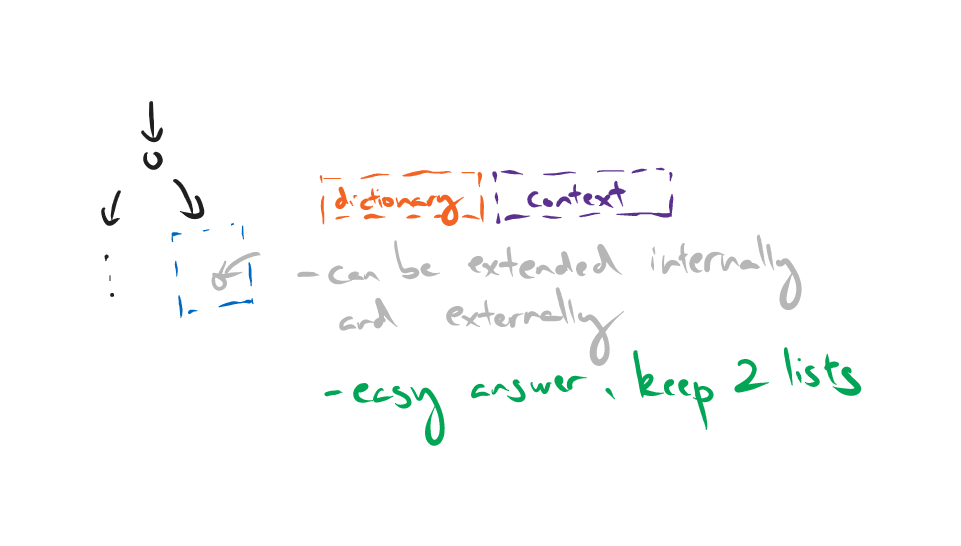 dictionary context
- can be extended internally
and externally
- easy answer, keep 2 lists